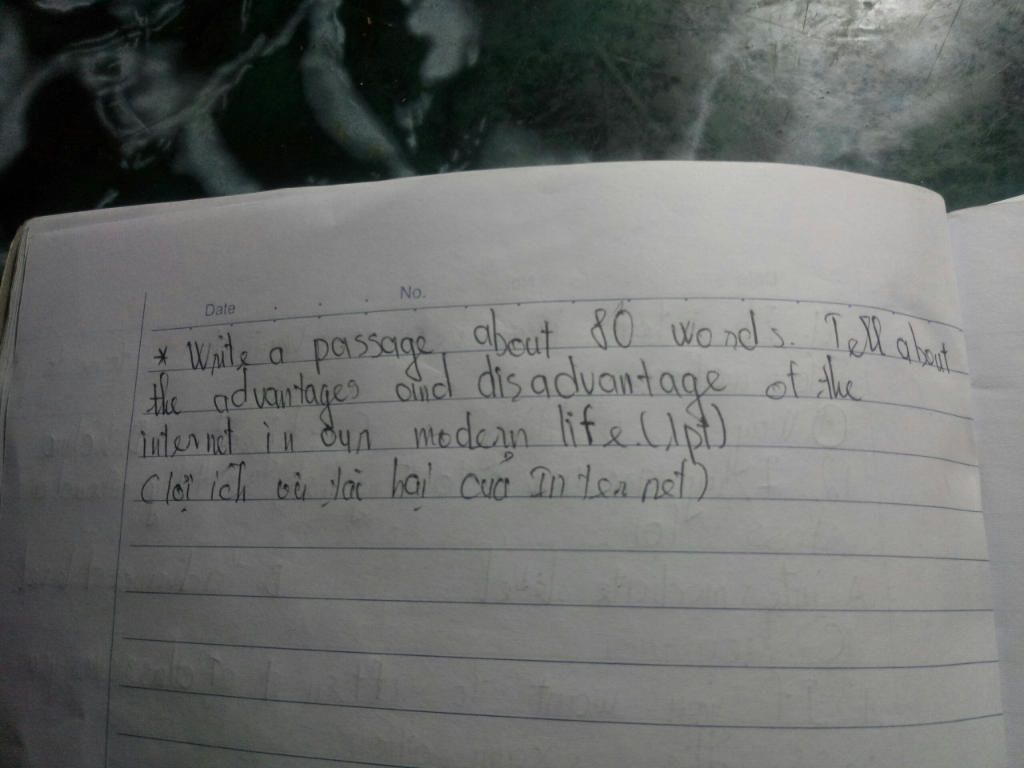 Date No.
* Write a passage about 80 words. Tell about
the advantages and disadvantage of the
internet in our modern life. (1pt)
(lợi ích và tác hại của Internet)